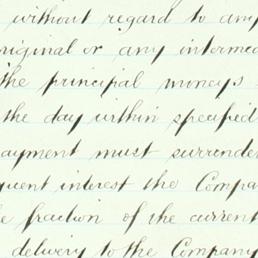 without regard to any
original or any interme
the principal moneys
the day within specified
ayment must surrende
quent interest the Compa
e fraction of the current
delivery to the Company